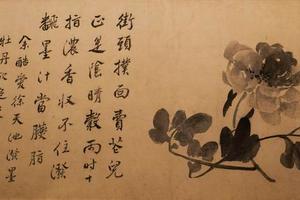 街頭撲面賣花兒
正是陰晴穀雨時十
指濃香収不住潑
翻墨汁當臙脂
余酷愛徐天池潑墨
牡丹